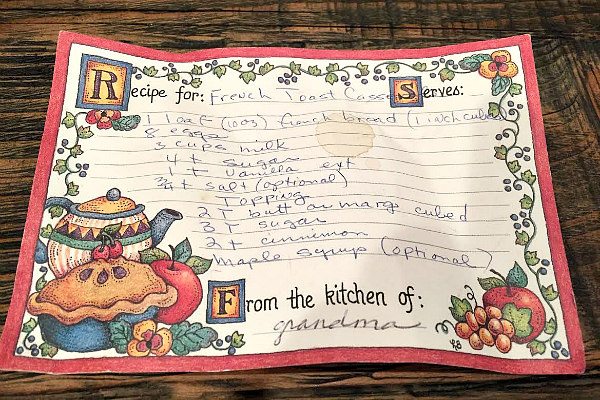 Recipe for: French Toast Casse Serves:
1 loaf (10oz) french bread (1 inch cubes)
8 eggs
3 cups milk
4 t sugar
1 t vanilla ext
3/4 t salt (optional)
Topping
2 T butt or marg cubed
3 T sugar
2 t cinnimon
Maple syrup (optional)
From the kitchen of:
grandma